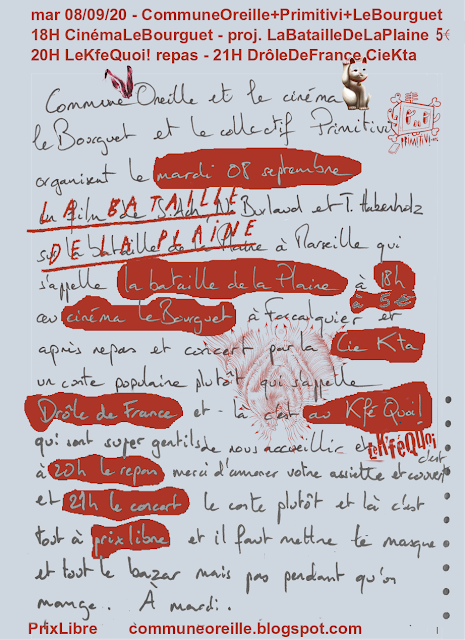 mar 08/09/20 - CommuneOreille+Primitivi+LeBourguet
18H CinémaLeBourguet - proj. LaBatailleDeLaPlaine 5€
20H LeKfeQuoi! repas - 21H DrôleDeFrance CieKta
Commune Oreille et le cinéma
le Bourguet et le collectif Primitivi
PRIMITIVI
organisent le mardi 08 septembre
LA BATAILLE
un film de S. Ach, N. Burlaud et T. Hakenholz
DE LA PLAINE
sur la bataille de la Plaine à Marseille qui
s'appelle la bataille de la Plaine à 18h
à 5€
au cinéma le Bourguet à Forcalquier et
après repas et concert par la Cie Kta
un conte populaire plutôt qui s'appelle
Drôle de France et là c'est au Kfé Quoi!
qui sont super gentils de nous accueillir et
LeKféQUOi
c'est
à 20h le repas merci d'amener votre assiette et couvert
et 21h le concert le conte plutôt et là c'est
tout à prix libre et il faut mettre le masque
et tout le bazar mais pas pendant qu'on
mange. À mardi.
PrixLibre communeoreille.blogspot.com